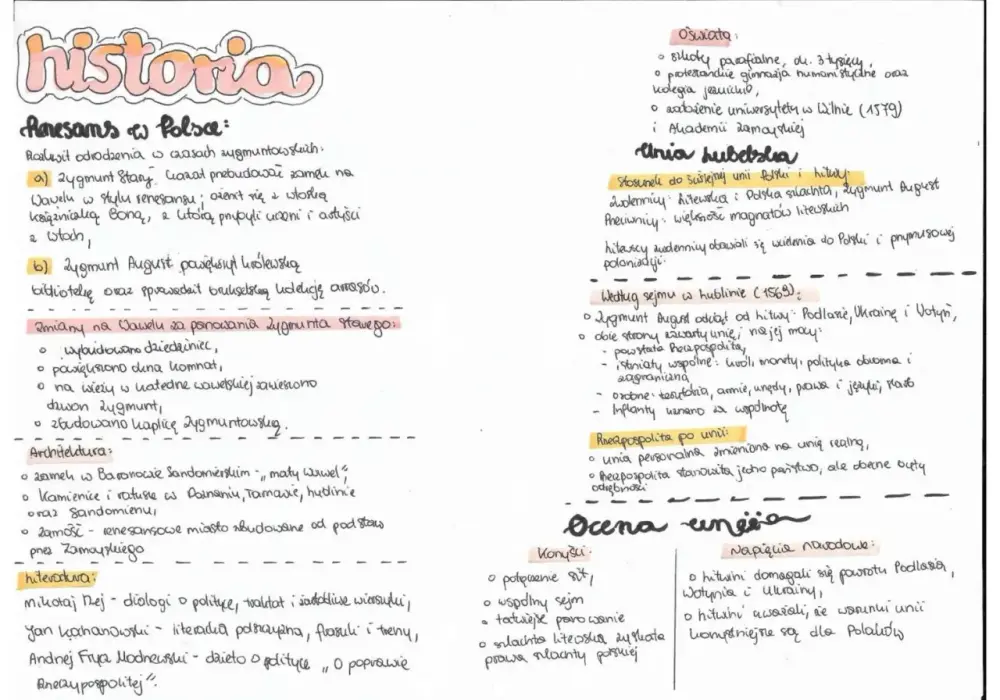 historia
Renesans w Polsce:
Rozkwit odrodzenia w czasach zygmuntowskich:
a) Zygmunt Stary kazał przebudować zamek na
Wawelu w stylu renesansu; ożenił się z włoską
księżniczką Boną, z którą przybyli uczeni i artyści
z Włoch,
b) Zygmunt August powiększył królewską
bibliotekę oraz sprowadził brukselską kolekcję arrasów.
Zmiany na Wawelu za panowania Zygmunta Starego:
o wybudowano dziedziniec,
o powiększono okna komnat,
o na wieży w katedrze wawelskiej zawieszono
dzwon Zygmunt,
o zbudowano kaplicę Zygmuntowską.
Architektura:
o zamek w Baranowie Sandomierskim - „mały Wawel",
o Kamienice i ratusze w Poznaniu, Tarnowie, Lublinie
oraz Sandomierzu,
o Zamość - renesansowe miasto zbudowane od podstaw
przez Zamoyskiego
Literatura:
Mikołaj Rej - dialogi o polityce, traktat i żartobliwe wierszyki,
Jan Kochanowski - literacka polszczyzna, fraszki i treny,
Andrzej Frycz Modrzewski - dzieło o polityce „O poprawie
Rzeczypospolitej".
Oświata:
o szkoły parafialne, ok. 3 tysięcy,
o protestanckie gimnazja humanistyczne oraz
kolegia jezuickie,
o założenie uniwersytetu w Wilnie (1579)
i Akademii Zamojskiej
Unia Lubelska
Stosunek do ściślejszej unii Polski i Litwy:
Zwolennicy: litewska i Polska szlachta, Zygmunt August
Przeciwnicy: większość magnatów litewskich
Litewscy zwolennicy obawiali się wcielenia do Polski i przymusowej
polonizacji.
Według sejmu w Lublinie (1569):
o Zygmunt August odłączył od Litwy: Podlasie, Ukrainę i Wołyń,
o obie strony zawarły unię, na jej mocy:
- powstała Rzeczpospolita,
- istniały wspólne: król, monety, polityka obronna i
zagraniczna
- osobne: terytoria, armie, urzędy, prawa i języki, skarb
- Inflanty uznano za wspólnotę
Rzeczpospolita po unii:
o unia personalna zmieniona na unię realną,
o Rzeczpospolita stanowiła jedno państwo, ale obecne były
odrębności
Ocena unii
Korzyści:
o połączenie sił,
o wspólny sejm
o łatwiejsze panowanie
o szlachta litewska zyskała
prawa szlachty polskiej
Napięcia narodowe:
o Litwini domagali się powrotu Podlasia,
Wołynia i Ukrainy,
o Litwini uważali, że warunki unii
korzystniejsze są dla Polaków